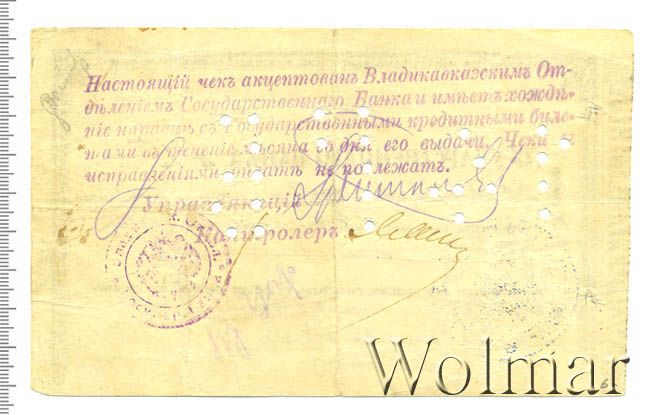 Настоящій чекъ акцептованъ Владикавказскимъ От-
дѣленіемъ Государственнаго Банка и имѣетъ хожде-
ніе наравнѣ съ Государственными кредитными биле-
тами въ теченіе мѣсяца со дня его выдачи. Чеки съ
исправленіями оплатѣ не подлежатъ.
Управляющій
Контролеръ
Wolmar